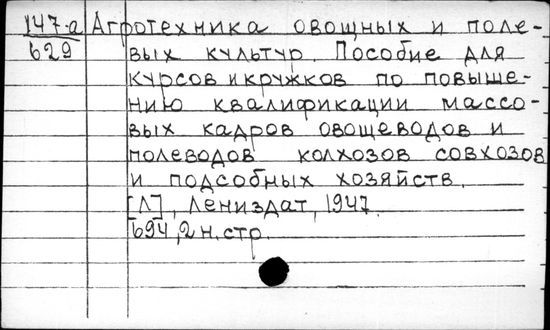 147-а Агротехника овощных и поле-
629 вых культур. Пособие для
курсов и кружков по повыше-
нию квалификации массо-
вых кадров овощеводов и
полеводов колхозов совхозов
и подсобных хозяйств.
[Л], Лениздат, 1947.
694, 2 н. стр.